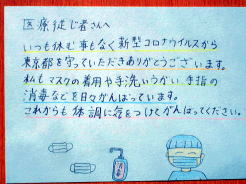 医療従事者さんへ
いつも休む事もなく新型コロナウイルスから
東京都を守っていただきありがとうございます。
私もマスクの着用や手洗いうがい手指の
消毒などを日々がんばっています。
これからも体調に気をつけてがんばってください。